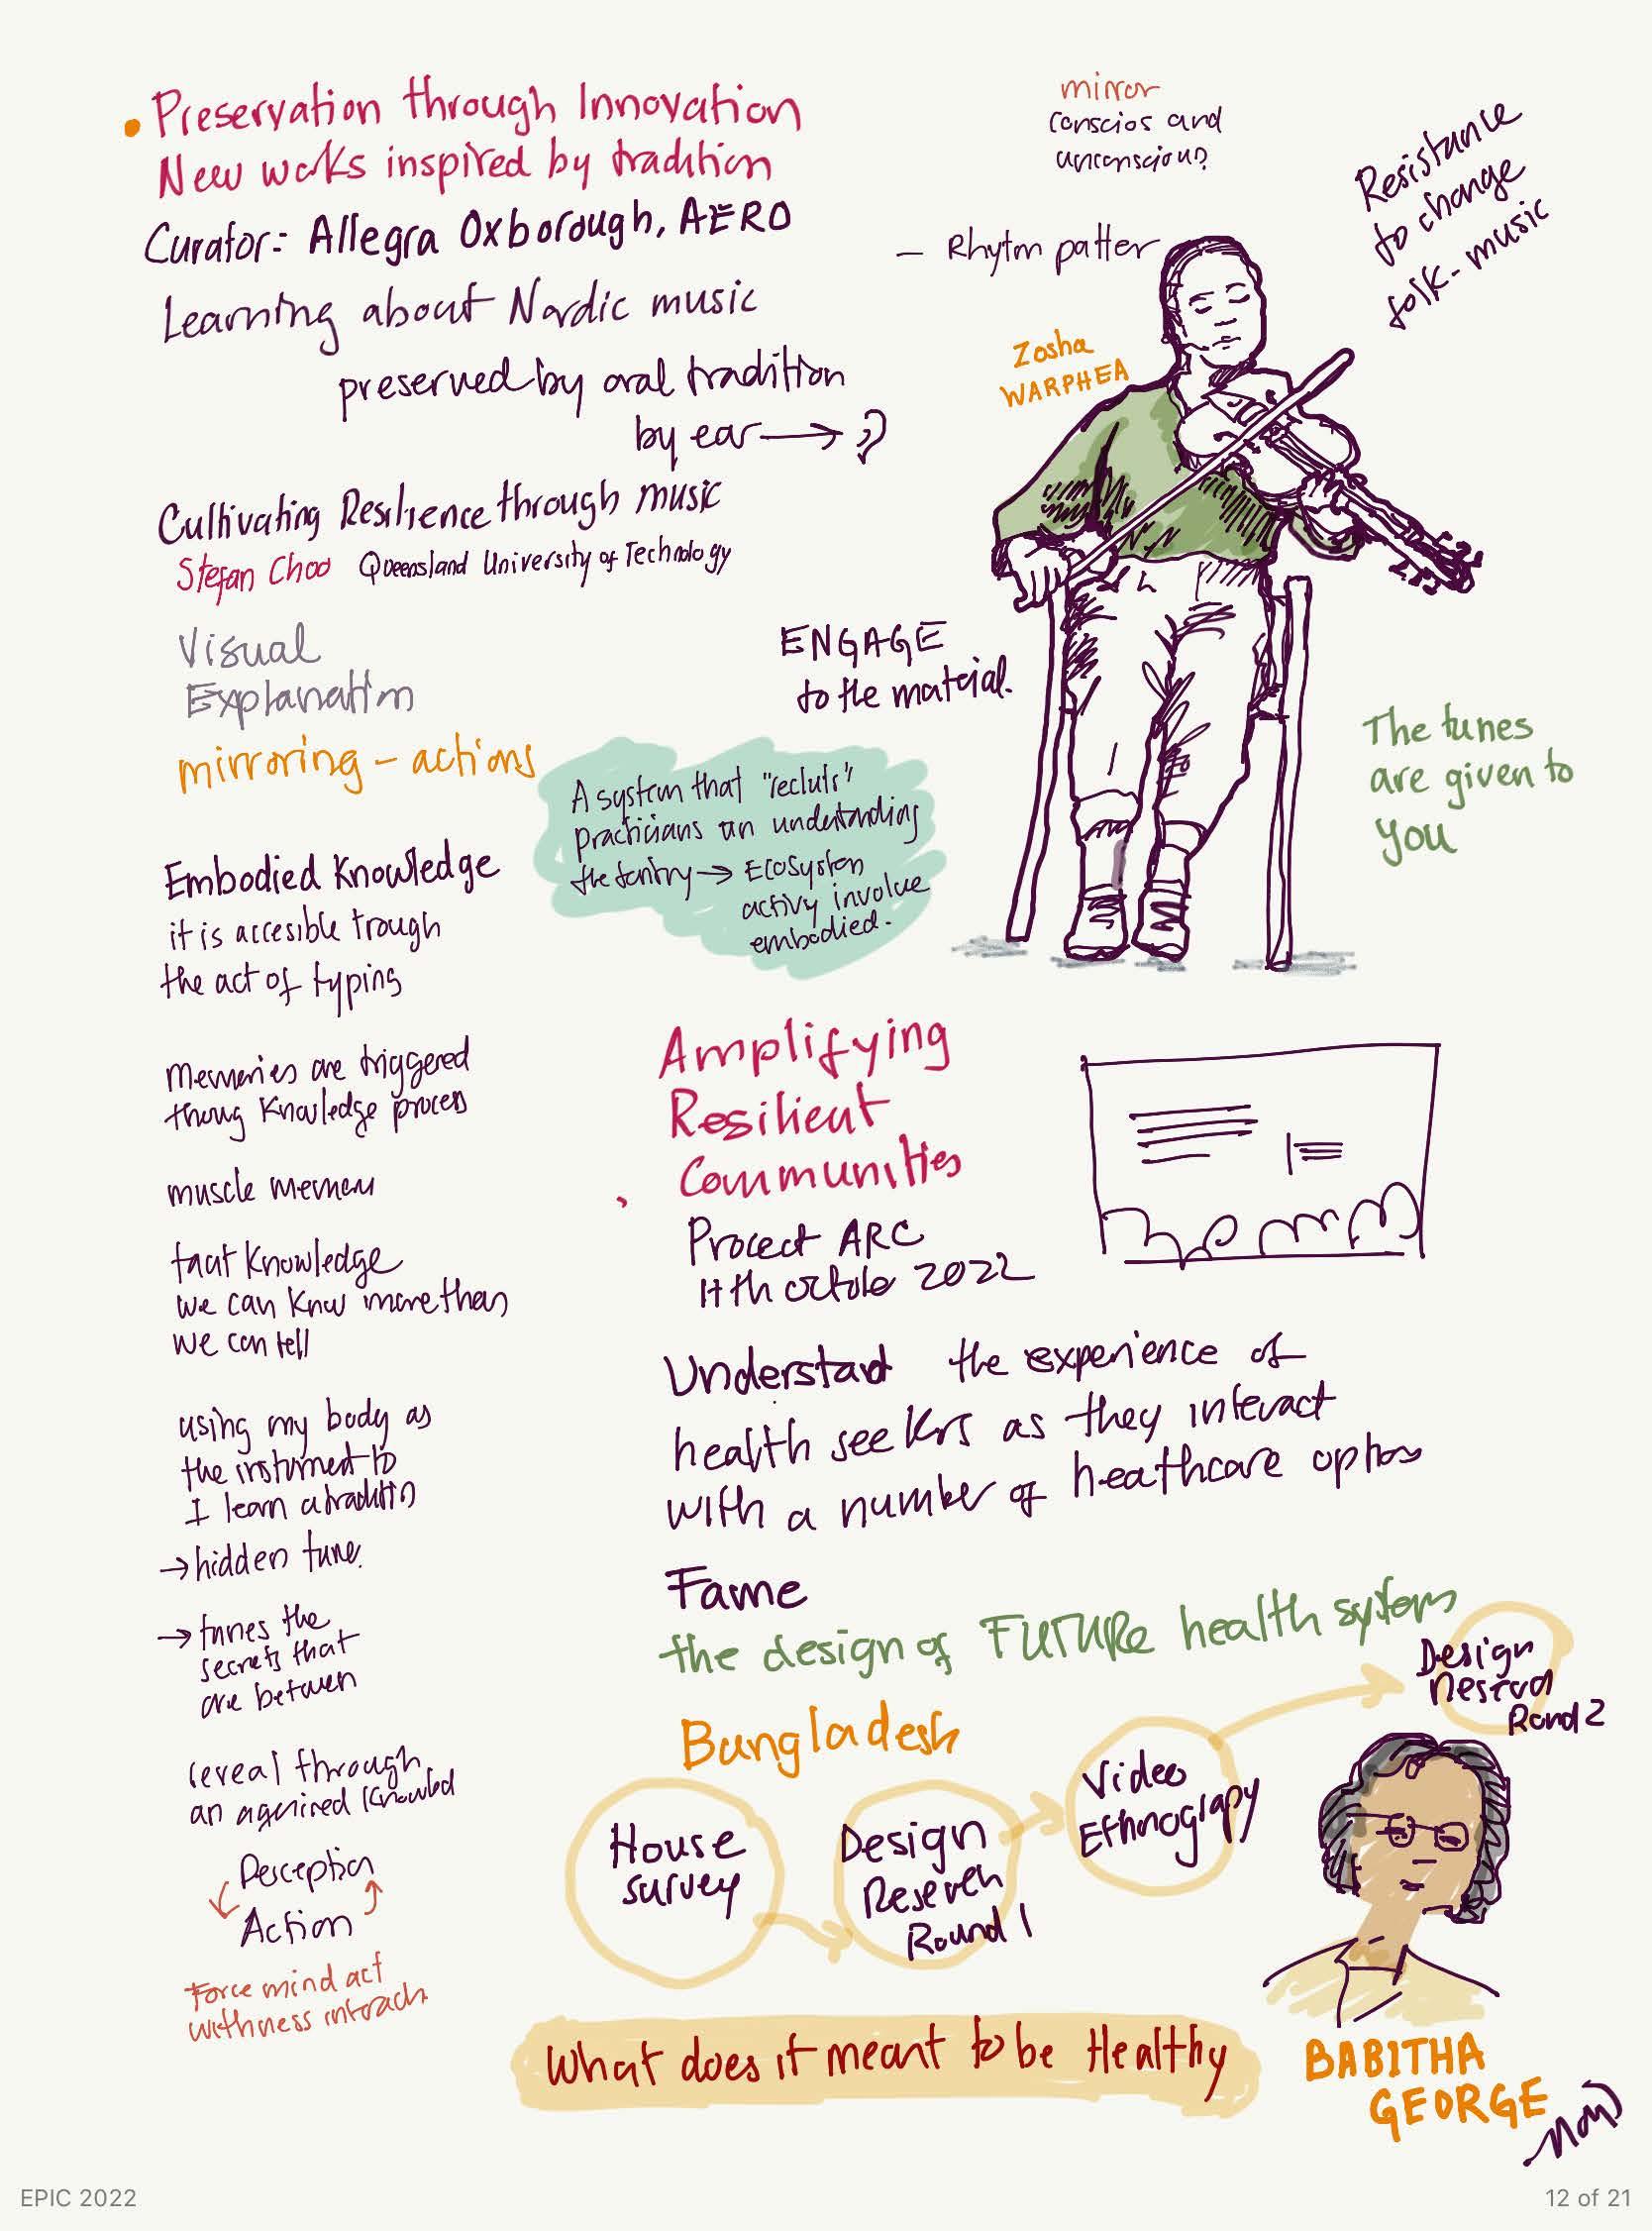 Preservation through Innovation
New works inspired by tradition
Curator: Allegra Oxborough, AERO
Learning about Nordic music
preserved by oral tradition
by ear →
mirror
conscios and
unconscious?
Resistance
to change
folk-music
– Rhytm patter
Zosha
WARPHEA
Cultivating Resilience through music
Stefan Choo Queensland University of Technology
Visual
Explanation
mirroring – actions
ENGAGE
to the material.
The tunes
are given to
you
A system that
practicians an understanding
the → Ecosystem
involve
embodied.
Embodied Knowledge
it is accesible trough
the act of typing
memories are triggered
Knowledge process
muscle
Knowledge
we can know more than
we can tell
using my body as
the
I learn a
→ hidden tune.
→ tunes the
secrets that
are between
reveal through
an
Perception
Action
Force mind act
withness
Amplifying
Resilient
Communities
Project ARC
11th 2022
Understand the experience of
health seekers as they interact
with a number of heathcare
Fame
the design of FUTURE health systems
Bangladesh
House
survey
Design
Round 1
Video
Ethnograpy
Design
Rond 2
What does it meant to be Healthy
BABITHA
GEORGE
EPIC 2022
12 of 21